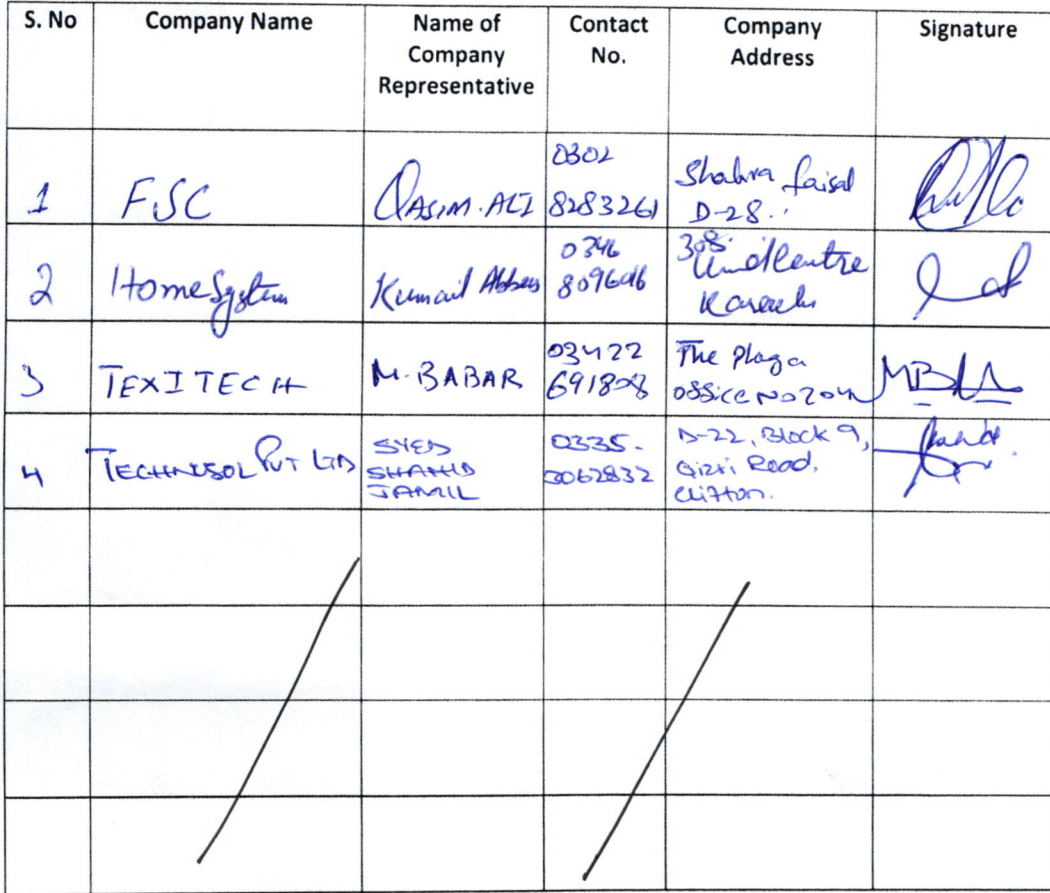 S. No
Company Name
Name of
Company
Representative
Contact
No.
Company
Address
Signature
1
FSC
QASIM. ALI
0302
8283261
Shahra faisal
D-28.
2
Home System
Kumail Abbas
0346
308.
Karachi
3
TEXITECH
M. BABAR
03422
691808
The Plaza
office No 204
4
TECHNISOL PVT LTD
SYED
SHAHID
JAMIL
0335.
0062832
D-22, Block 9,
Gizri Road,
Clifton.